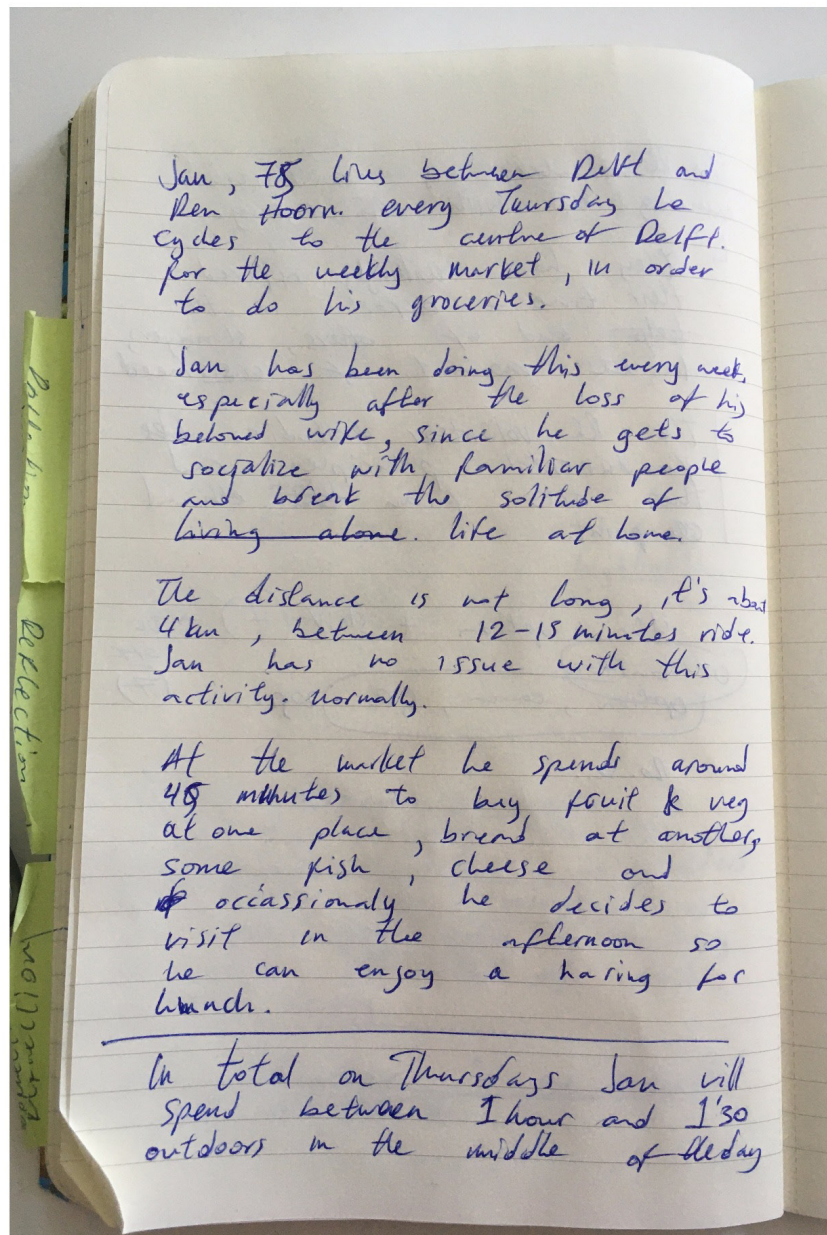 Jan, 75 lives between Delft and
Den Hoorn. every Thursday he
cycles to the centre of Delft.
for the weekly market, in order
to do his groceries.
Jan has been doing this every week,
especially after the loss of his
beloved wife, since he gets to
socialize with familiar people
and break the solitude of
living alone. life at home.
The distance is not long, it's about
4km, between 12-15 minutes ride.
Jan has no issue with this
activity. normally.
At the market he spends around
45 minutes to buy fruit & veg
at one place, bread at another,
some fish, cheese and
occassionaly he decides to
visit in the afternoon so
he can enjoy a haring for
lunch.
In total on Thursdays Jan will
spend between 1 hour and 1'30
outdoors in the middle of the day
Reflection